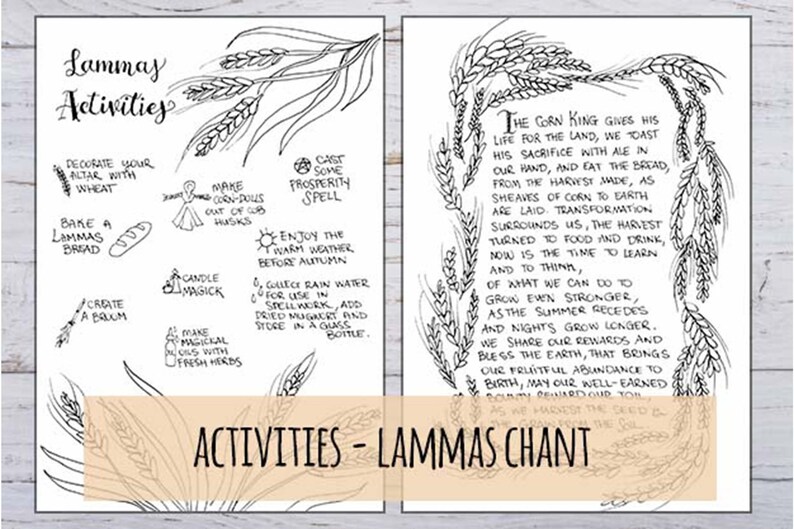 Lammas
Activities
DECORATE YOUR
ALTAR WITH
WHEAT
MAKE
CORN-DOLLS
OUT OF COB
HUSKS
CAST
SOME
PROSPERITY
SPELL
BAKE A
LAMMAS
BREAD
ENJOY THE
WARM WEATHER
BEFORE AUTUMN
CANDLE
MAGICK
COLLECT RAIN WATER
FOR USE IN
SPELLWORK, ADD
DRIED MUGWORT AND
STORE IN A GLASS
BOTTLE.
CREATE
A BROOM
MAKE
MAGICKAL
OILS WITH
FRESH HERBS
THE CORN KING GIVES HIS
LIFE FOR THE LAND, WE TOAST
HIS SACRIFICE WITH ALE IN
OUR HAND, AND EAT THE BREAD,
FROM THE HARVEST MADE, AS
SHEAVES OF CORN TO EARTH
ARE LAID. TRANSFORMATION
SURROUNDS US, THE HARVEST
TURNED TO FOOD AND DRINK,
NOW IS THE TIME TO LEARN
AND TO THINK,
OF WHAT WE CAN DO TO
GROW EVEN STRONGER,
AS THE SUMMER RECEDES
AND NIGHTS GROW LONGER.
WE SHARE OUR REWARDS AND
BLESS THE EARTH, THAT BRINGS
OUR FRUITFUL ABUNDANCE TO
BIRTH, MAY OUR WELL-EARNED
BOUNTY REWARD OUR TOIL,
AS WE HARVEST THE SEED &
THE GRAIN FROM THE SOIL.
ACTIVITIES - LAMMAS CHANT